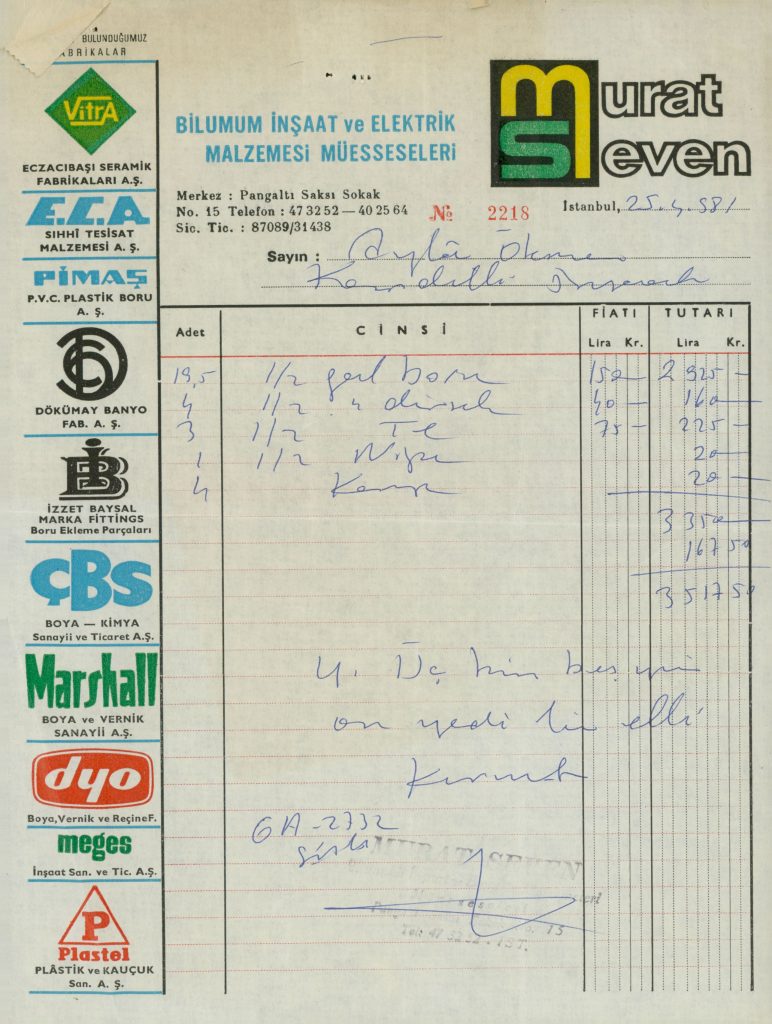 BULUNDUĞUMUZ
FABRİKALAR
VitrA
ECZACIBAŞI SERAMİK
FABRİKALARI A.Ş.
E.C.A
SIHHÎ TESİSAT
MALZEMESİ A. Ş.
PİMAŞ
P.V.C. PLASTİK BORU
A. Ş.
DÖKÜMAY BANYO
FAB. A. Ş.
İZZET BAYSAL
MARKA FİTTİNGS
Boru Ekleme Parçaları
ÇBS
BOYA — KİMYA
Sanayii ve Ticaret A.Ş.
Marshall
BOYA ve VERNİK
SANAYİİ A.Ş.
dyo
Boya, Vernik ve Reçine F.
meges
İnşaat San. ve Tic. A.Ş.
P
Plastel
PLÂSTİK ve KAUÇUK
San. A. Ş.
BİLUMUM İNŞAAT ve ELEKTRİK
MALZEMESİ MÜESSESELERİ
murat
seven
Merkez : Pangaltı Saksı Sokak
No. 15 Telefon : 47 32 52 — 40 25 64
Sic. Tic. : 87089/31438
№ 2218
İstanbul, 25.4.981
Sayın : Ayla Ökmen
Kandilli
Adet CİNSİ FİATI TUTARI
Lira Kr. Lira Kr.
19,5 1/2 gal boru 150 — 2 925 —
4 1/2 " dirsek 40 — 160 —
3 1/2 Te 75 — 225 —
1 1/2 Nipel 20 —
4 20 —
3 350 —
167 50
3 517 50
Y. Üç bin beş yüz
on yedi lira elli
Kuruş
GA-2732
Şişli
Tel: 47 32 52 - İST.